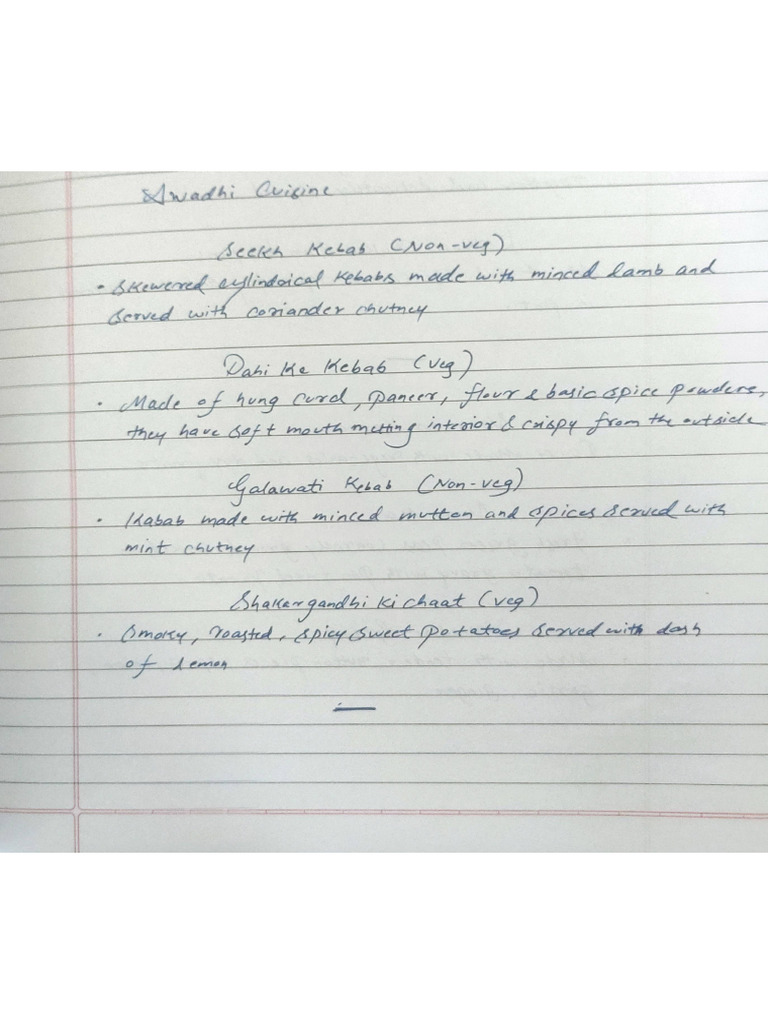 Awadhi Cuisine
Seekh Kebab (Non-veg)
• Skewered cylindrical Kebabs made with minced lamb and
served with coriander chutney
Dahi Ke Kebab (veg)
• Made of hung curd, paneer, flour & basic spice powders,
they have soft mouth melting interior & crispy from the outside
Galawati Kebab (Non-veg)
• Kabab made with minced mutton and spices served with
mint chutney
Shakargandhi ki chaat (veg)
• Smoky, roasted, spicy sweet potatoes served with dash
of lemon